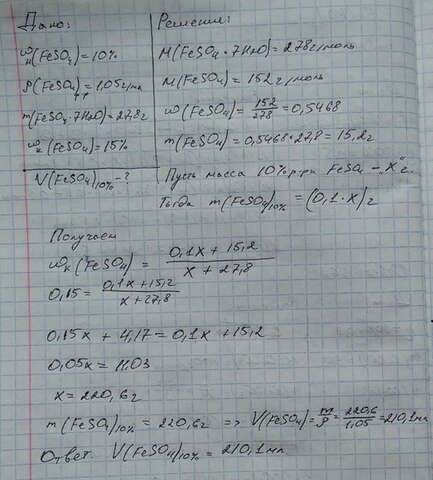 Дано:
ωн(FeSO4)=10%
ρ(FeSO4)р-р=1,05г/мл
m(FeSO4·7H2O)=27,8г
ωк(FeSO4)=15%
V(FeSO4)10%-?
Решение:
M(FeSO4·7H2O)=278г/моль
M(FeSO4)=152г/моль
ω(FeSO4)=152/278=0,5468
m(FeSO4)=0,5468*27,8=15,2г
Пусть масса 10%р-ра FeSO4 -„X“г.
Тогда m(FeSO4)10%=(0,1·x)г
Получаем
ωк(FeSO4)=0,1x+15,2/x+27,8
0,15=0,1x+15,2/x+27,8
0,15x+4,17=0,1x+15,2
0,05x=11,03
x=220,6г
m(FeSO4)10%=220,6г => V(FeSO4)=m/ρ=220,6/1,05=210,1мл
Ответ V(FeSO4)10%=210,1мл.